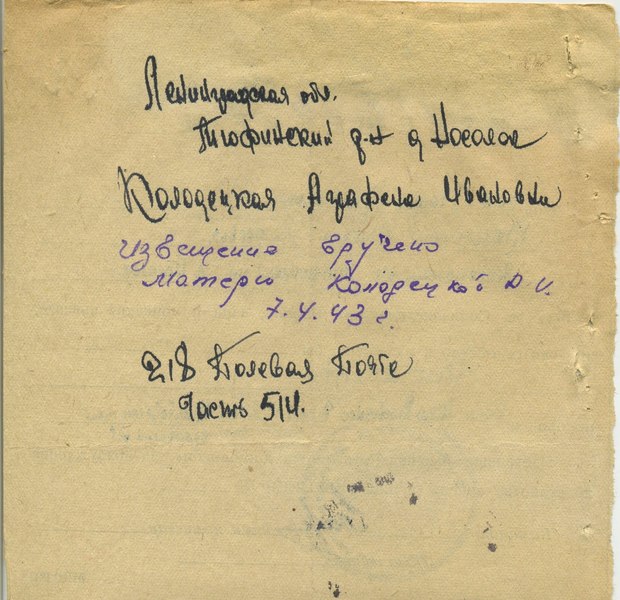 Ленинградская обл.
Тихфинский р-н д Носалое
Колодецкая Аграфена Ивановна
Извещение вручено
Матери Колодецкой А И.
7.4.43 г.
218 Полевая Почта
Часть 514.